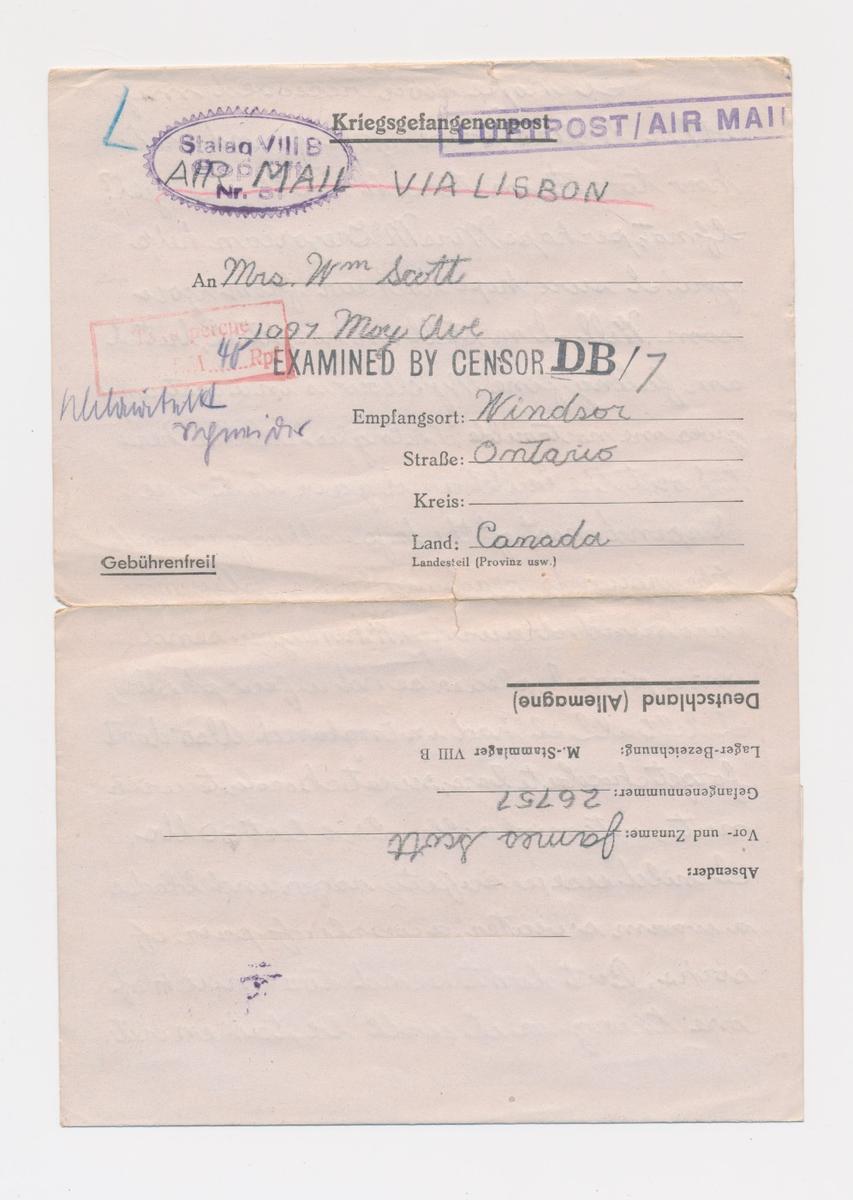 Kriegsgefangenenpost
LUFTPOST/AIR MAIL
Stalag VIII B
Nr.
AIR MAIL VIA LISBON
An Mrs. Wm Scott
1097 Moy Ave
40 Rpf
EXAMINED BY CENSOR DB/7
Schneider
Empfangsort: Windsor
Straße: Ontario
Kreis:
Land: Canada
Landesteil (Provinz usw.)
Gebührenfrei!
Absender:
Vor- und Zuname: James Scott
Gefangenennummer: 26757
Lager-Bezeichnung: M.-Stammlager VIII B
Deutschland (Allemagne)